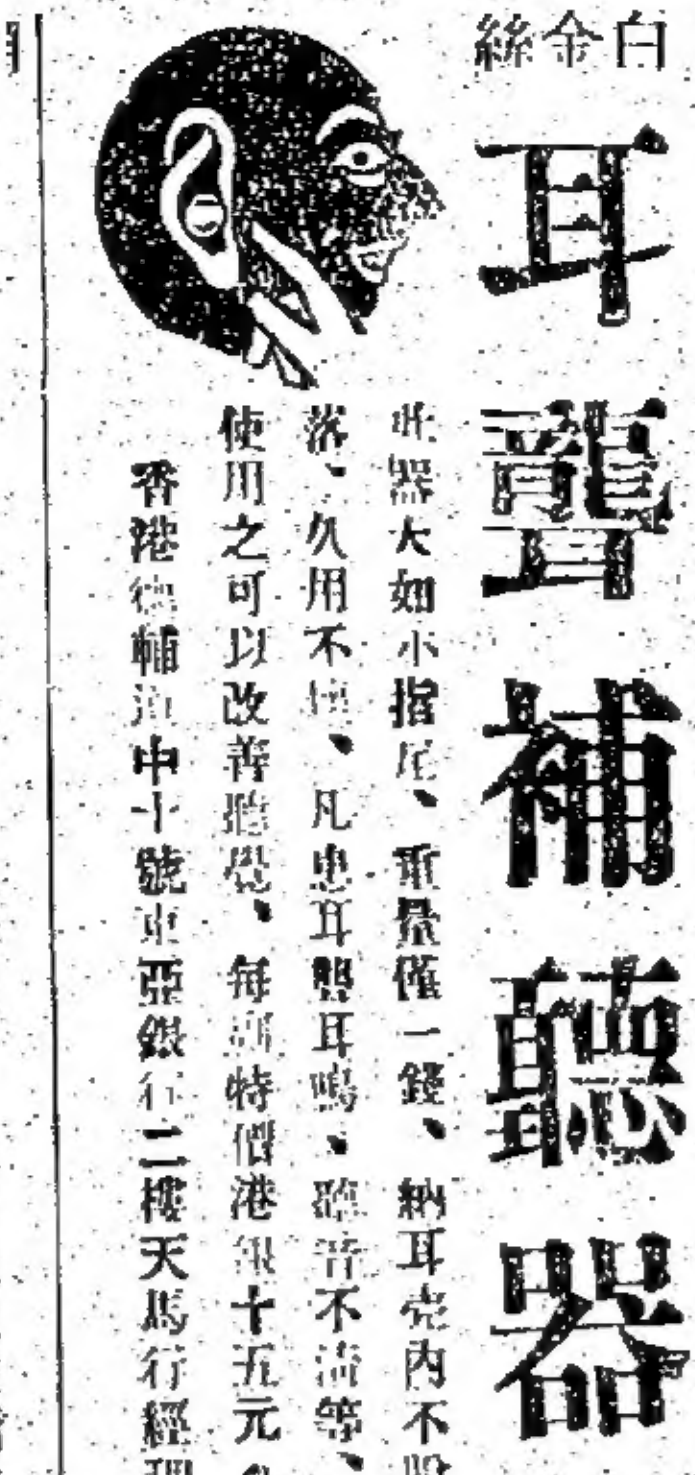 白金絲
耳聾補聽器
此器大如小指尾、重量僅一錢、納耳壳內不脫
落、久用不壞、凡患耳聾耳鳴、聽音不清等、
使用之可以改善聽覺、每副特價港銀十五元
香港德輔道中十號東亞銀行二樓天馬行經理